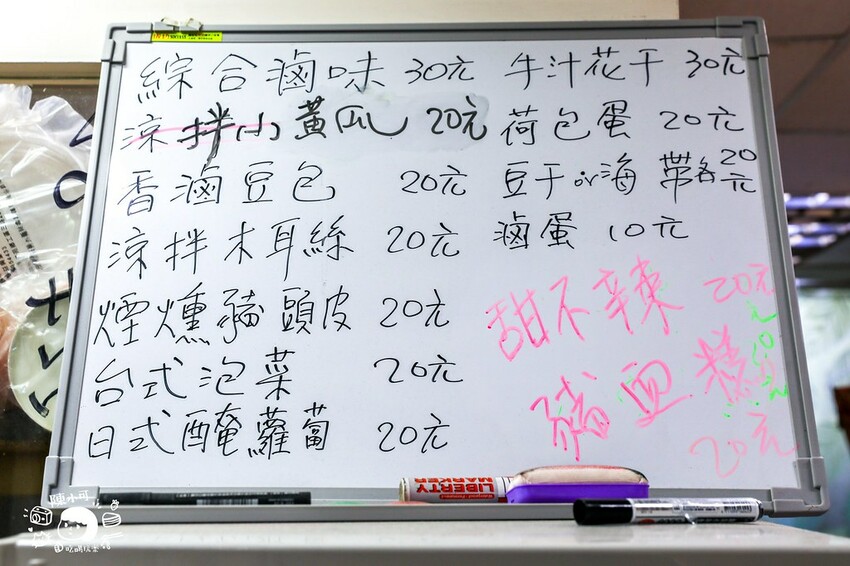 綜合滷味 30元
涼拌小黃瓜 20元
香滷豆包 20元
涼拌木耳絲 20元
煙燻豬頭皮 20元
台式泡菜 20元
日式醃蘿蔔 20元
牛汁花干 30元
荷包蛋 20元
豆干or海帶各20元
滷蛋 10元
甜不辣 20元
豬血糕 20元
LIBERTY
MARKER
陳小可